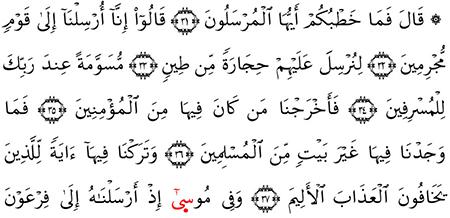 ۞ قَالَ فَمَا خَطْبُكُمْ أَيُّهَا ٱلْمُرْسَلُونَ ﴿٣١﴾ قَالُوٓا۟ إِنَّآ أُرْسِلْنَآ إِلَىٰ قَوْمٍ
مُّجْرِمِينَ ﴿٣٢﴾ لِنُرْسِلَ عَلَيْهِمْ حِجَارَةً مِّن طِينٍ ﴿٣٣﴾ مُّسَوَّمَةً عِندَ رَبِّكَ
لِلْمُسْرِفِينَ ﴿٣٤﴾ فَأَخْرَجْنَا مَن كَانَ فِيهَا مِنَ ٱلْمُؤْمِنِينَ ﴿٣٥﴾ فَمَا
وَجَدْنَا فِيهَا غَيْرَ بَيْتٍ مِّنَ ٱلْمُسْلِمِينَ ﴿٣٦﴾ وَتَرَكْنَا فِيهَآ ءَايَةً لِّلَّذِينَ
يَخَافُونَ ٱلْعَذَابَ ٱلْأَلِيمَ ﴿٣٧﴾ وَفِى مُوسَىٰٓ إِذْ أَرْسَلْنَـٰهُ إِلَىٰ فِرْعَوْنَ